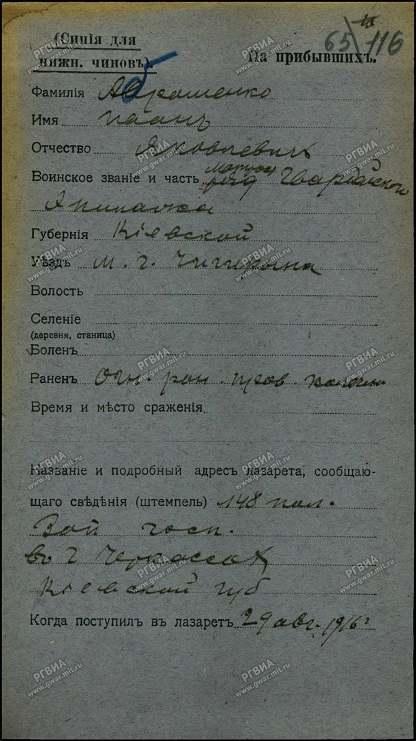 65/116
(Синія для
нижн. чиновъ).
На прибывшихъ.
Фамилія Аврашенко
Имя Иванъ
Отчество Яковлевичъ
Воинское званіе и часть матрос Гвардейского
Экипажа
Губернія Кіевской
Уѣздъ м. г. Чигирина
Волость
Селеніе
(деревня, станица)
Боленъ
Раненъ Огн. ран. прав.
Время и мѣсто сраженія
Названіе и подробный адресъ лазарета, сообщаю-
щаго свѣдѣнія (штемпель) 148 пол.
Зап. госп.
въ г. Черкассах
Кіевской губ
Когда поступилъ въ лазаретъ 29 авг. 1916 г
РГВИА
www.gwar.mil.ru